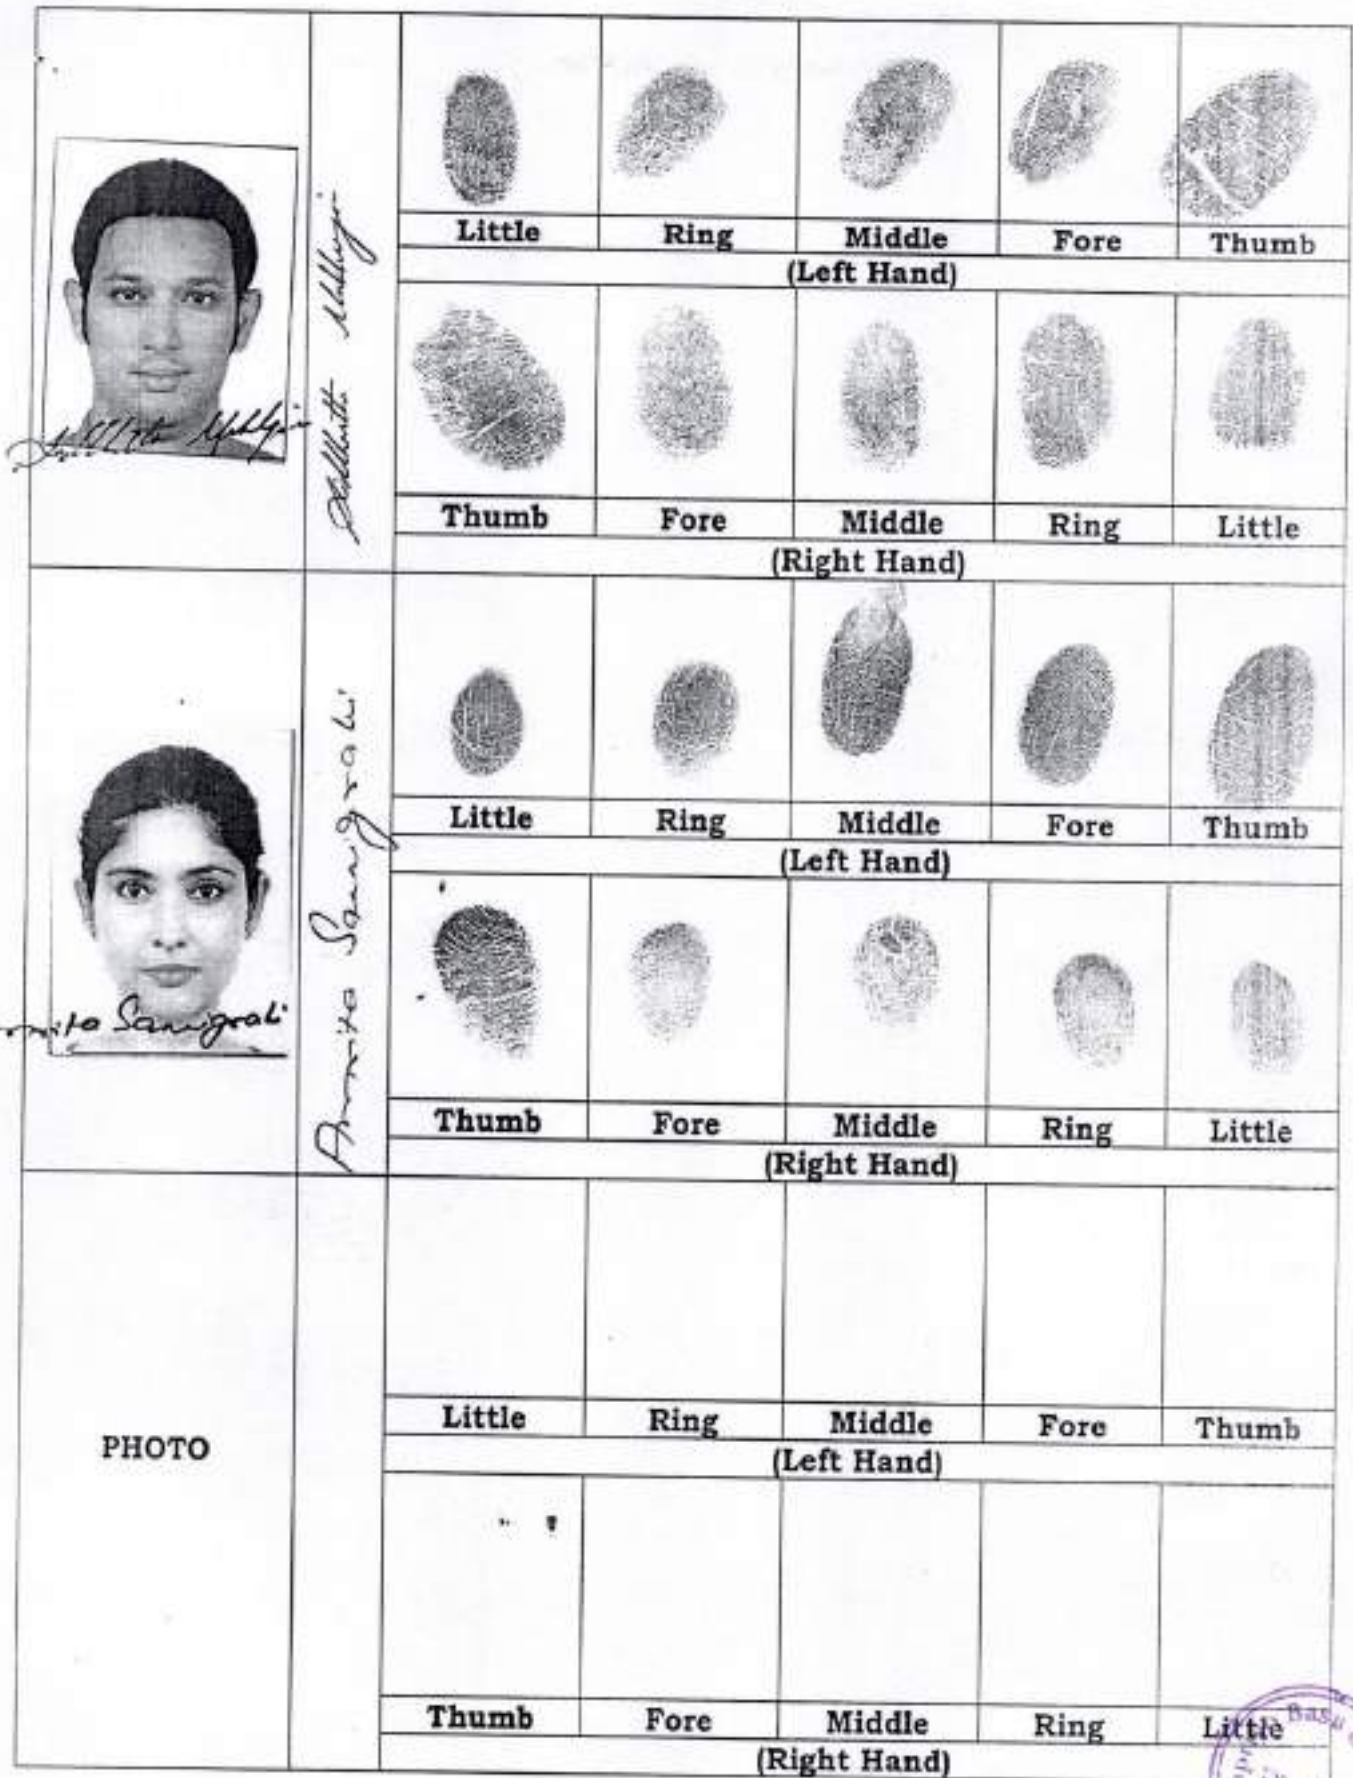 Little Ring Middle Fore Thumb
(Left Hand)
Thumb Fore Middle Ring Little
(Right Hand)
Amrita Sannigrahi
Sannigrahi
Little Ring Middle Fore Thumb
(Left Hand)
Thumb Fore Middle Ring Little
(Right Hand)
PHOTO
Little Ring Middle Fore Thumb
(Left Hand)
Thumb Fore Middle Ring Little
(Right Hand)
Basu